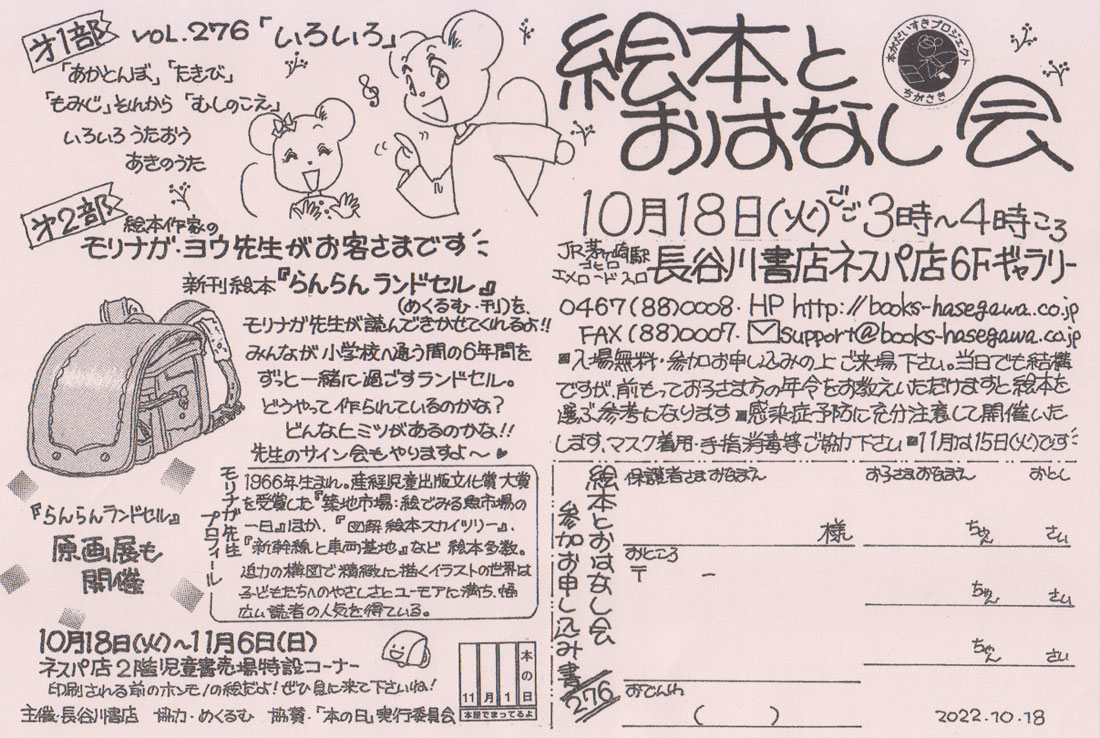 第1部 VOL.276「いろいろ」
「あかとんぼ」「たきび」
「もみじ」それから「むしのこえ」
いろいろ うたおう
あきのうた
第2部 絵本作家の
モリナガ・ヨウ先生がお客さまです
新刊絵本『らんらん ランドセル』
(めくるむ・刊)を、
モリナガ先生が読んできかせてくれるよ!!
みんなが小学校へ通う間の6年間を
ずっと一緒に過ごすランドセル。
どうやって作られているのかな?
どんなヒミツがあるのかな!!
先生のサイン会もやりますよ〜
モリナガ先生
プロフィール
1966年生まれ。産経児童出版文化賞大賞
を受賞した『築地市場:絵でみる魚市場の
一日』ほか、『図解絵本スカイツリー』、
『新幹線と車両基地』など 絵本多数。
迫力の構図で精緻に描くイラストの世界は
子どもたちへのやさしさとユーモアに満ち、幅
広い読者の人気を得ている。
『らんらんランドセル』
原画展も
開催
10月18日(火)〜11月6日(日)
ネスパ店2階児童書売場特設コーナー
印刷される前のホンモノの絵だよ!ぜひ見に来て下さいね!
主催・長谷川書店 協力・めくるむ 協賛・「本の日」実行委員会
本の日
11月1
本屋でまってるよ
絵本と
おはなし会
本がだいすきプロジェクト
ちがさき
10月18日(火)ごご3時〜4時ころ
JR茅ヶ崎駅
北口
エメロード入口
長谷川書店ネスパ店6Fギャラリー
0467(88)0008・HP http://books-hasegawa.co.jp
FAX(88)0007・support@books-hasegawa.co.jp
■入場無料・参加お申し込みの上ご来場下さい。当日でも結構
ですが、前もってお子さま方の年令をお教えいただけますと絵本を
選ぶ参考になります■感染症予防に充分注意して開催いた
します、マスク着用・手指消毒等ご協力下さい■11月は15日(火)です
絵本とおはなし会
参加お申し込み書
276
保護者さまおなまえ
様
おところ
〒 -
おでんわ
( )
お子さまおなまえ おとし
ちゃん さい
ちゃん さい
ちゃん さい
2022.10.18